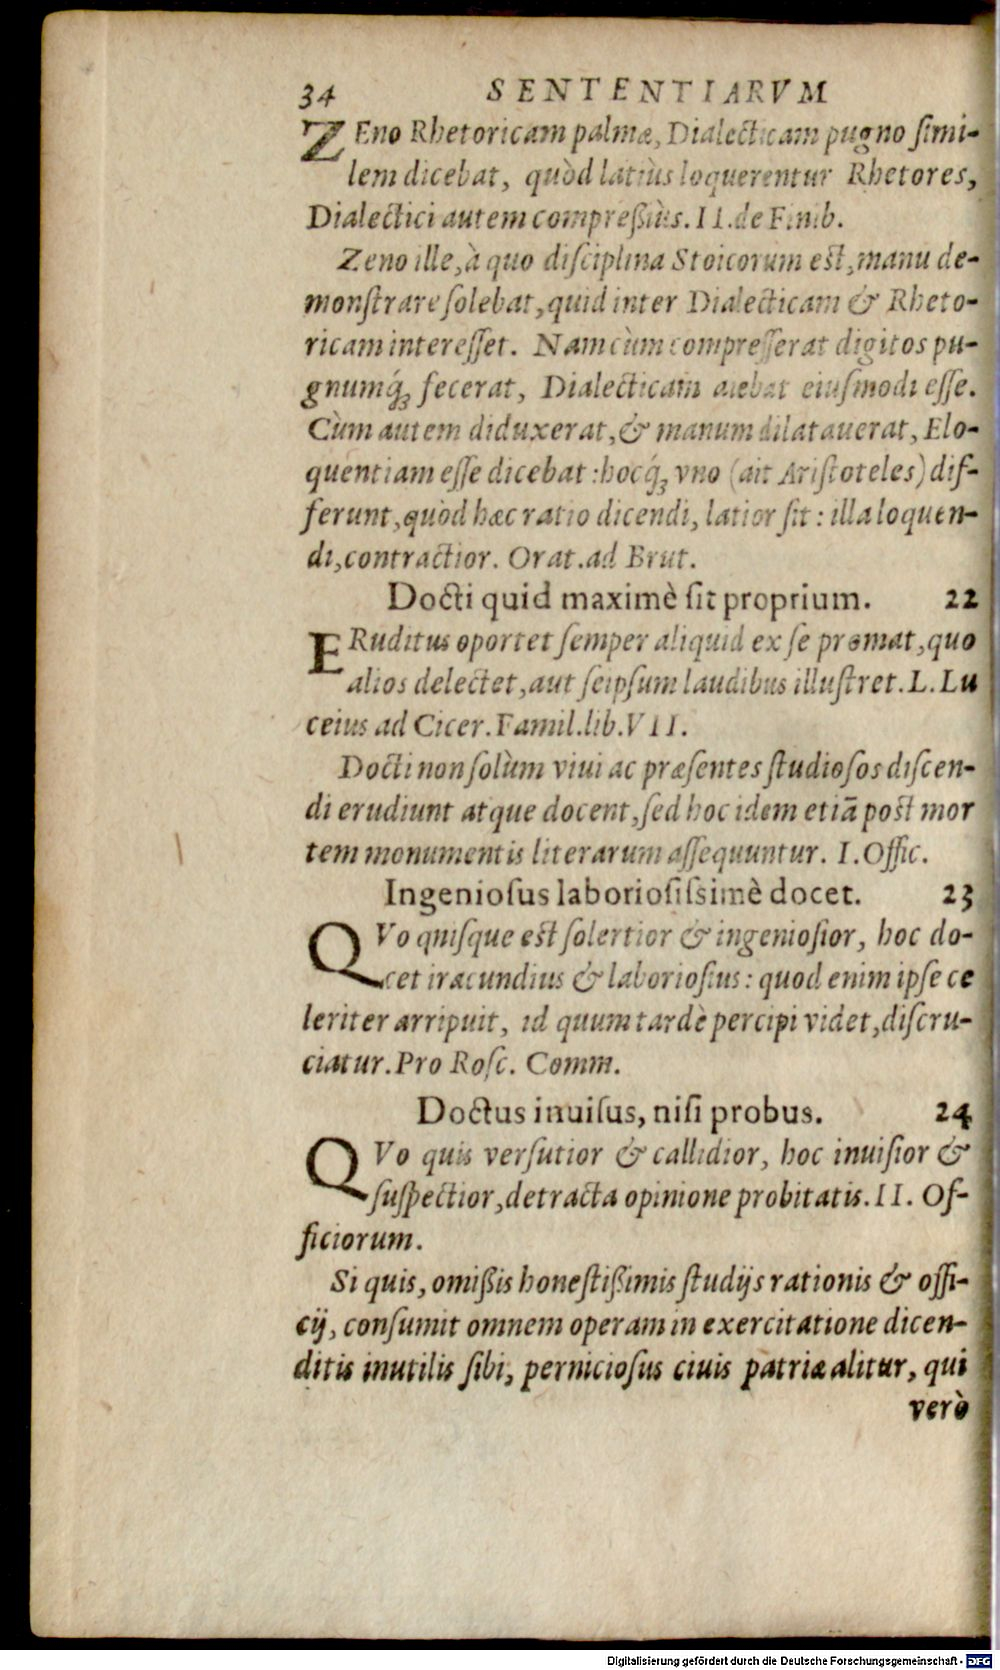 34 SENTENTIARVM
ZEno Rhetoricam palmæ, Dialecticam pugno simi-
lem dicebat, quòd latiùs loquerentur Rhetores,
Dialectici autem compreßiùs. II. de Finib.
Zeno ille, à quo disciplina Stoicorum est, manu de-
monstrare solebat, quid inter Dialecticam & Rheto-
ricam interesset. Nam cùm compresserat digitos pu-
gnumq́ꝫ fecerat, Dialecticam aiebat eiusmodi esse.
Cùm autem diduxerat, & manum dilatauerat, Elo-
quentiam esse dicebat: hocq́ꝫ vno (ait Aristoteles) dif-
ferunt, quòd hæc ratio dicendi, latior sit: illa loquen-
di, contractior. Orat. ad Brut.
Docti quid maximè sit proprium. 22
ERuditus oportet semper aliquid ex se promat, quo
alios delectet, aut seipsum laudibus illustret. L. Lu
ceius ad Cicer. Famil. lib. VII.
Docti non solùm viui ac præsentes studiosos discen-
di erudiunt atque docent, sed hoc idem etiã post mor
tem monumentis literarum assequuntur. I. Offic.
Ingeniosus laboriosissimè docet. 23
QVo qnisque est solertior & ingeniosior, hoc do-
cet iracundius & laboriosius: quod enim ipse ce
leriter arripuit, id quum tardè percipi videt, discru-
ciatur. Pro Rosc. Comm.
Doctus inuisus, nisi probus. 24
QVo quis versutior & callidior, hoc inuisior &
suspectior, detracta opinione probitatis. II. Of-
ficiorum.
Si quis, omißis honestißimis studijs rationis & offi-
cij, consumit omnem operam in exercitatione dicen-
ditis inutilis sibi, perniciosus ciuis patriæ alitur, qui
verò
Digitalisierung gefördert durch die Deutsche Forschungsgemeinschaft - DFG